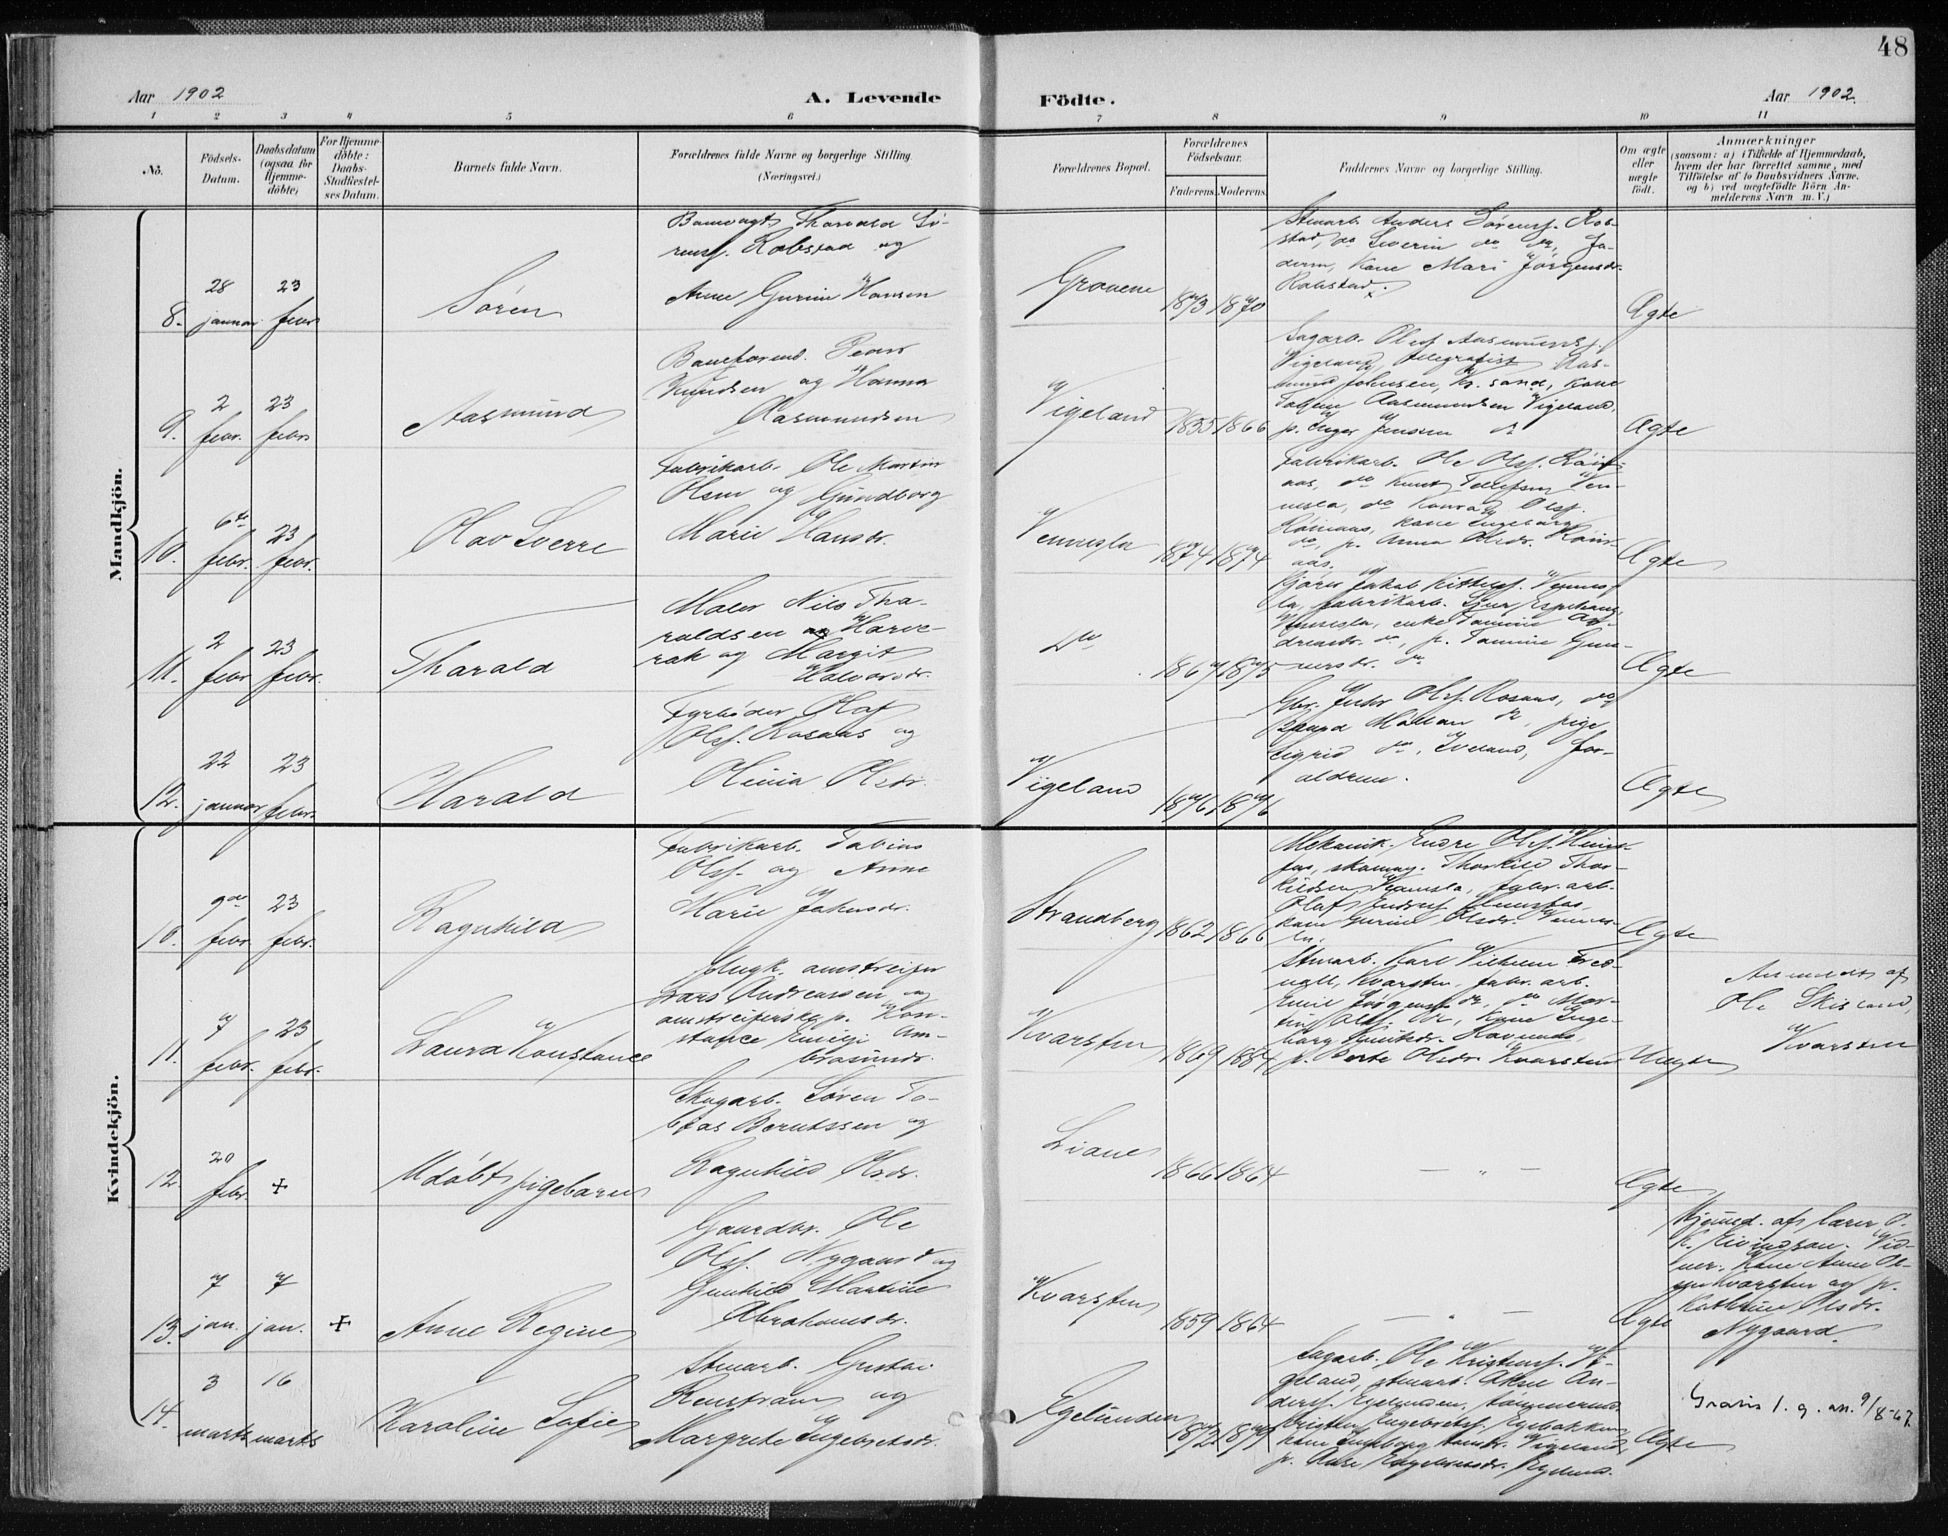 48
Aar 1902
A. Levende
Födte.
Aar 1902.
1 2 3 4 5 6 7 8 9 10 11
No.
Födsels-
Datum.
Daabsdatum
(ogsaa for
Hjemme-
döbte)
For Hjemme-
döbte:
Daabs-
Stadfæstel-
ses Datum.
Barnets fulde Navn.
Forældrenes fulde Navne og borgerlige Stilling.
(Næringsvei.)
Forældrenes Bopæl.
Forældrenes
Födselsaar.
Faderens. Moderens.
Faddernes Navne og borgerlige Stilling.
Om ægte
eller
uægte
födt.
Anmærkninger
(saasom: a) i Tilfælde af Hjemmedaab,
hvem der har forrettet samme, med
Tilföielse af to Daabsvidners Navne,
og b) ved uægtefödte Börn An-
melderens Navn m. V.)
Mandkjön.
8.
28
januar
23
febr.
Sören
Banevogt Tharald Sö-
rensf. Robstad og
Anne Gurine Hansen
Grovene
1873 1870
Stuarb. Anders Sörensf. Rob-
stad, do Severin do do, Fa-
deren, Kone Mari Jörgensdr.
Robstad.
Ægte
9.
2
febr.
23
febr.
Aasmund
Baneformd. Peder
Knudsen og Hanna
Aasmundsen
Vigeland
1855 1866
Sagarb. Olaf Aasmundsf.
Vigeland, telegrafist Aas-
mund Johnsen, Kr.sand, Kone
Aasmundsen Vigeland,
p. Inger Jensen do
Ægte
10.
6te
febr.
23
febr.
Olav Sverre
Fabrikarb. Ole Martin
Olsen og Gundborg
Marie Hansdr.
Vennesla
1874 1874
Fabrikarb. Ole Olsf.
aas, do Knut Tellefsen Ven-
nesla, do Konrad Olsf.
kone Ingeborg
do, p. Anna Olsdr.
aas.
Ægte
11.
2
febr.
23
febr.
Tharald
Maler Nils Tha-
raldsen Harve-
rak og Margit
Halvorsdr.
Do
1867 1875
Jakob Kittelsf. Vennes-
la, fabrikarb.
Vennesla, enke Tomine An-
dreasdr. do, p. Tomine Gun-
nersdr. do
Ægte
12.
22
januar
23
febr.
Harald
Fyrböder Olaf
Olsf. Rosaas og
Olivia Olsdr.
Vigeland
1876 1876
Gbr. Olsf. Rosaas, do
do, pige
Sigrid do, Iveland, for-
ældrene.
Ægte
Kvindekjön.
10.
9de
febr.
23
febr.
Ragnhild
Fabrikarb. Tobias
Olsf. og Anne
Marie Jakobsdr.
Strandberg
1862 1866
Mekanik. Endre Olsf.
skomag. Thorkild Thor-
kildsen Vennesla, fabr. arb.
Olaf Endresf.
kone Gurine Olsdr. Vennes-
la.
Ægte
11.
7
febr.
23
febr.
Laura Konstance
Ungk. omstreifer
Lars Andreassen og
omstreiferske p. Kon-
stance Emilie Am-
brosiusdr.
Kvarsten
1869 1884
Stuarb. Karl Vilhelm
Kvarsten, fabr. arb.
Emil Jörgensf. do, do Mar-
tin Olsf. do, Kone Inge-
borg Knutsdr.
p. Berte Olsdr. Kvarsten
Uægte
Anmeldt af
Ole Skisland,
Kvarsten
12.
20
febr.
+
Udöbt pigebarn
Skogarb. Sören To-
bias Berntssen og
Ragnhild Olsdr.
Liane
1866 1864
— „ —
Ægte
13.
7
jan.
7
jan.
+
Anne Regine
Gaardbr. Ole
Olsf. Nygaard og
Gunhild Martine
Abrahamsdr.
Kvarsten
1859 1864
— „ —
Ægte
Hjemmed. af lærer O.
K. Eivindson. Vid-
ner: Kone Anne Ol-
sen Kvarsten og p.
Kathrine Olsdr.
Nygaard.
14.
3
marts
16
marts
Karoline Sofie
Stuarb. Gustav
Renström og
Margrete Ingebretsdr.
Egelunden
1872 1879
Sagarb. Ole Kristensf. Vi-
geland, stuarb. Aksel An-
dersf. Egelunden,
Kristen Engebretsf.
kone Ingeborg Vigeland
p. Anne Engebretsdr. Egelund.
Ægte
Gratis l. g. att. 9/8-47.